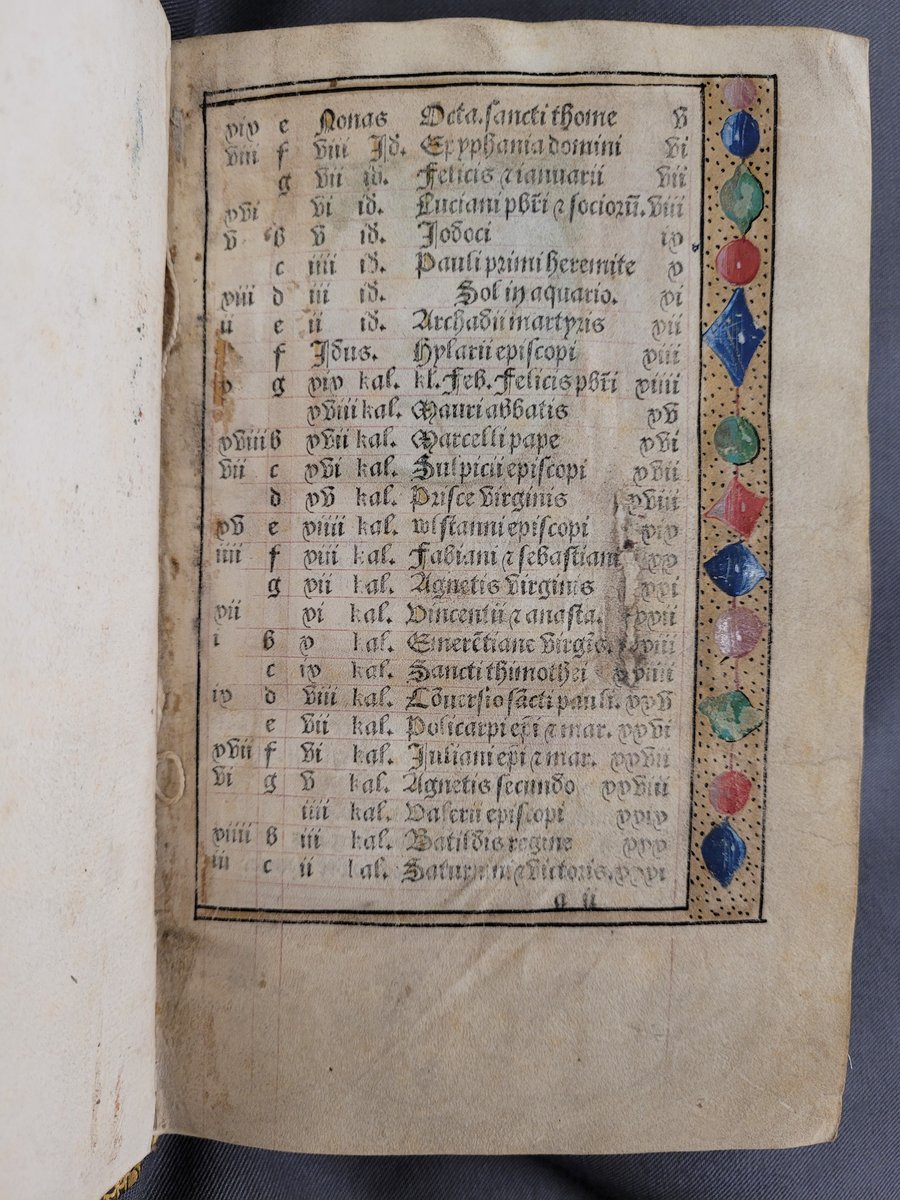 xix e Nonas Octa. sancti thome v
viii f viii Id. Epyphania domini vi
g vii id. Felicis ⁊ ianuarii vii
xvi vi id. Luciani pbr̄i ⁊ sociorū. viii
v b v id. Jodoci ix
c iiii id. Pauli primi heremite x
xiii d iii id. Sol in aquario. xi
ii e ii id. Archadii martyris xii
f Idus. Hylarii episcopi xiii
x g xix kal. kl. Feb. Felicis pbr̄i xiiii
xviii kal. Mauri abbatis xv
xviii b xvii kal. Marcelli pape xvi
vii c xvi kal. Sulpicii episcopi xvii
d xv kal. Prisce virginis xviii
xv e xiiii kal. wlstanni episcopi xix
iiii f xiii kal. Fabiani ⁊ sebastiani xx
g xii kal. Agnetis virginis xxi
xii xi kal. Vincentii ⁊ anasta. xxii
i b x kal. Emerētiane virgīs. xxiii
c ix kal. Sancti thimothei xxiiii
ix d viii kal. Cōversio sācti pauli. xxv
e vii kal. Policarpi ep̄i ⁊ mar. xxvi
xvii f vi kal. Juliani ep̄i ⁊ mar. xxvii
vi g v kal. Agnetis secundo xxviii
iiii kal. Valerii episcopi xxix
xiiii b iii kal. Batildis regine xxx
iii c ii kal. Saturnini ⁊ victoris. xxxi
a ii